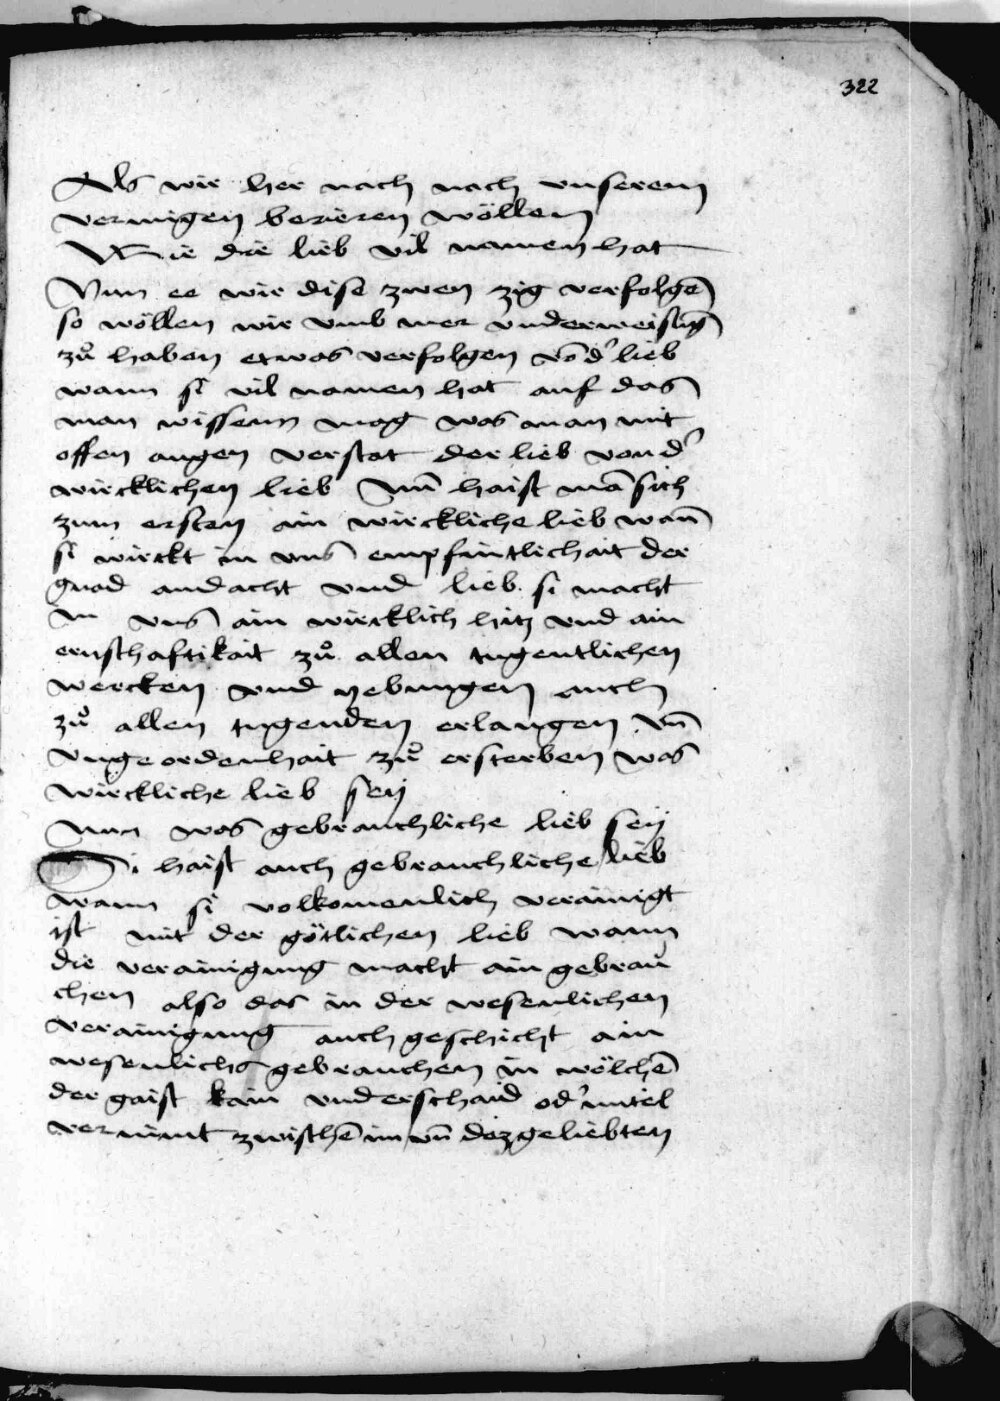 322
Als wir her nach nach vnserem
vermigen berieren wöllem
Wie die lieb vil namen hat
Nun ee wir dise zwen zig verfolgē
so wöllen wir vmb mer vnderweisūg
zů haben etwas verfolgen vō d' lieb
wann si vil namen hat auf das
man wissenn mag was man mit
offen augen verstat der lieb von d'
wircklichen lieb Nun̄ haist mā sich
zum ersten ain wirckliche lieb wan̄
si wirckt in vns empfintlichait der
gnad andacht vnd lieb si macht
in vns ain wircklich hitz vnd ain
ernschaftikait zů allen tugentlichen
wercken vnd yebungen auch
zů allen tugenden erlangen vn̄
vngeordenhait zů ersterben was
wirckliche lieb seÿ
Nun was gebrauchliche lieb seÿ
Si haist auch gebrauchliche lieb
wann si volkomenlich verainigt
ist mit der götlichen lieb wann
die verainigung macht ain gebrau
chen also das in der wesenlichen
verainigung auch geschicht ain
wesenlichs gebrauchen in wölchē
der gaist kain vnderschaid od' mitel
vernimt zwischē im vn̄ dez geliebten